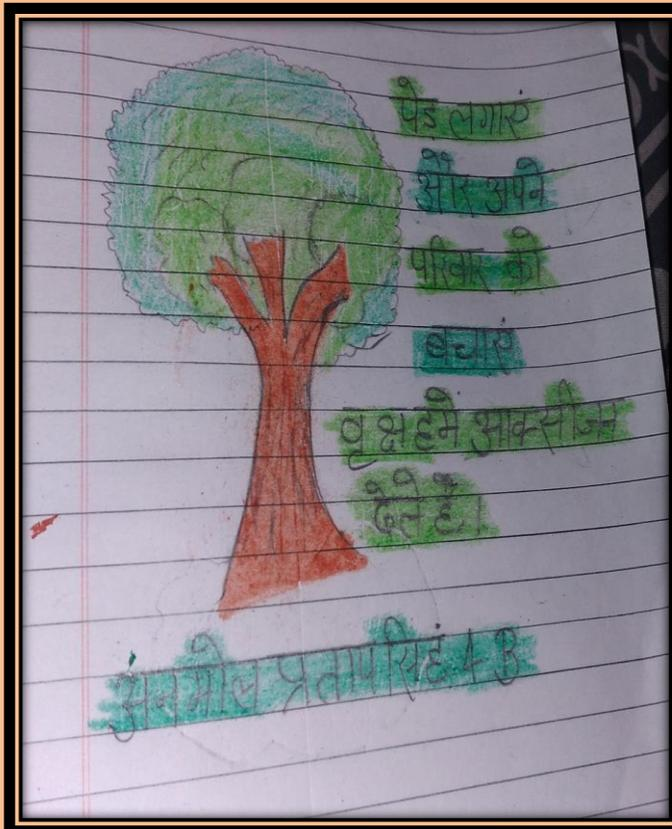 पेड लगाएं
और अपने
परिवार को
बचाएं
वृक्ष हमे आक्सीजन
देते है।
अनमोल प्रताप सिहं 4 B